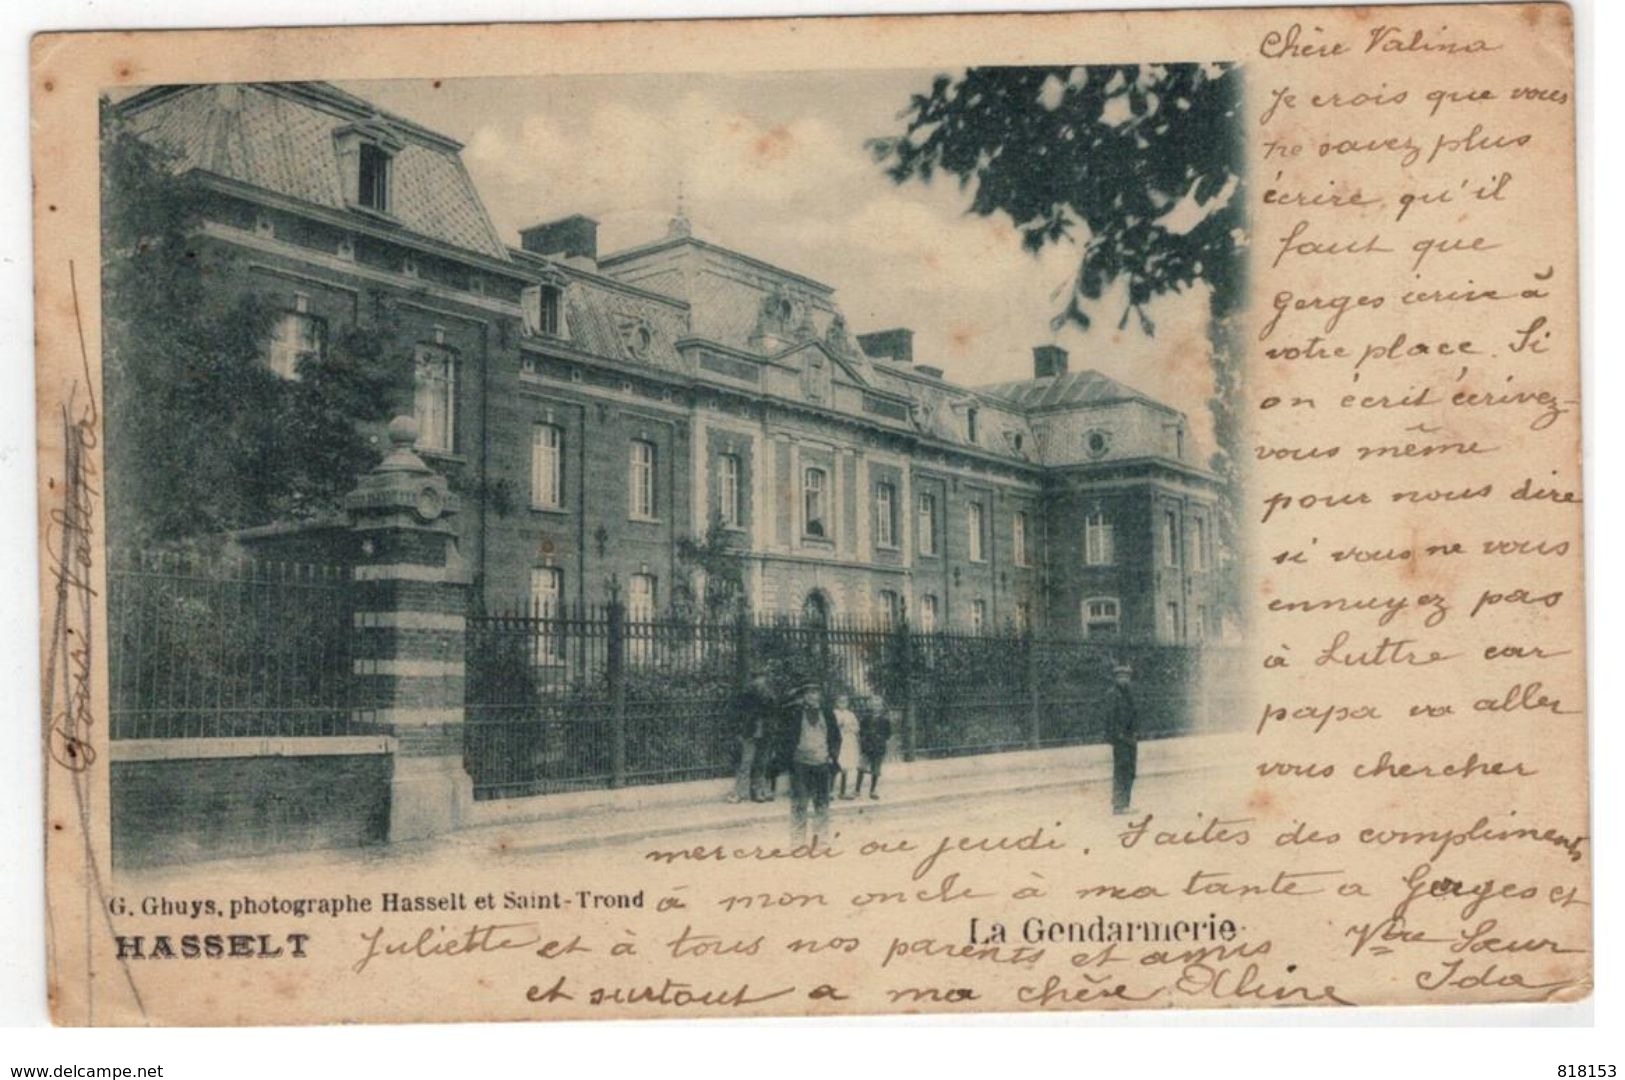 Chère Valina
Je crois que vous
ne savez plus
écrire, qu'il
faut que
Gorges écrive à
votre place. Si
on écrit écrivez-
vous même
pour nous dire
si vous ne vous
ennuyez pas
à Luttre car
papa va aller
vous chercher
mercredi ou jeudi. Faites des compliments
à mon oncle à ma tante a Gorges et
Juliette et à tous nos parents et amis Vtre Sœur
et surtout a ma chère Aline Ida
Pour Valina
G. Ghuys, photographe Hasselt et Saint-Trond
HASSELT
La Gendarmerie
www.delcampe.net
818153